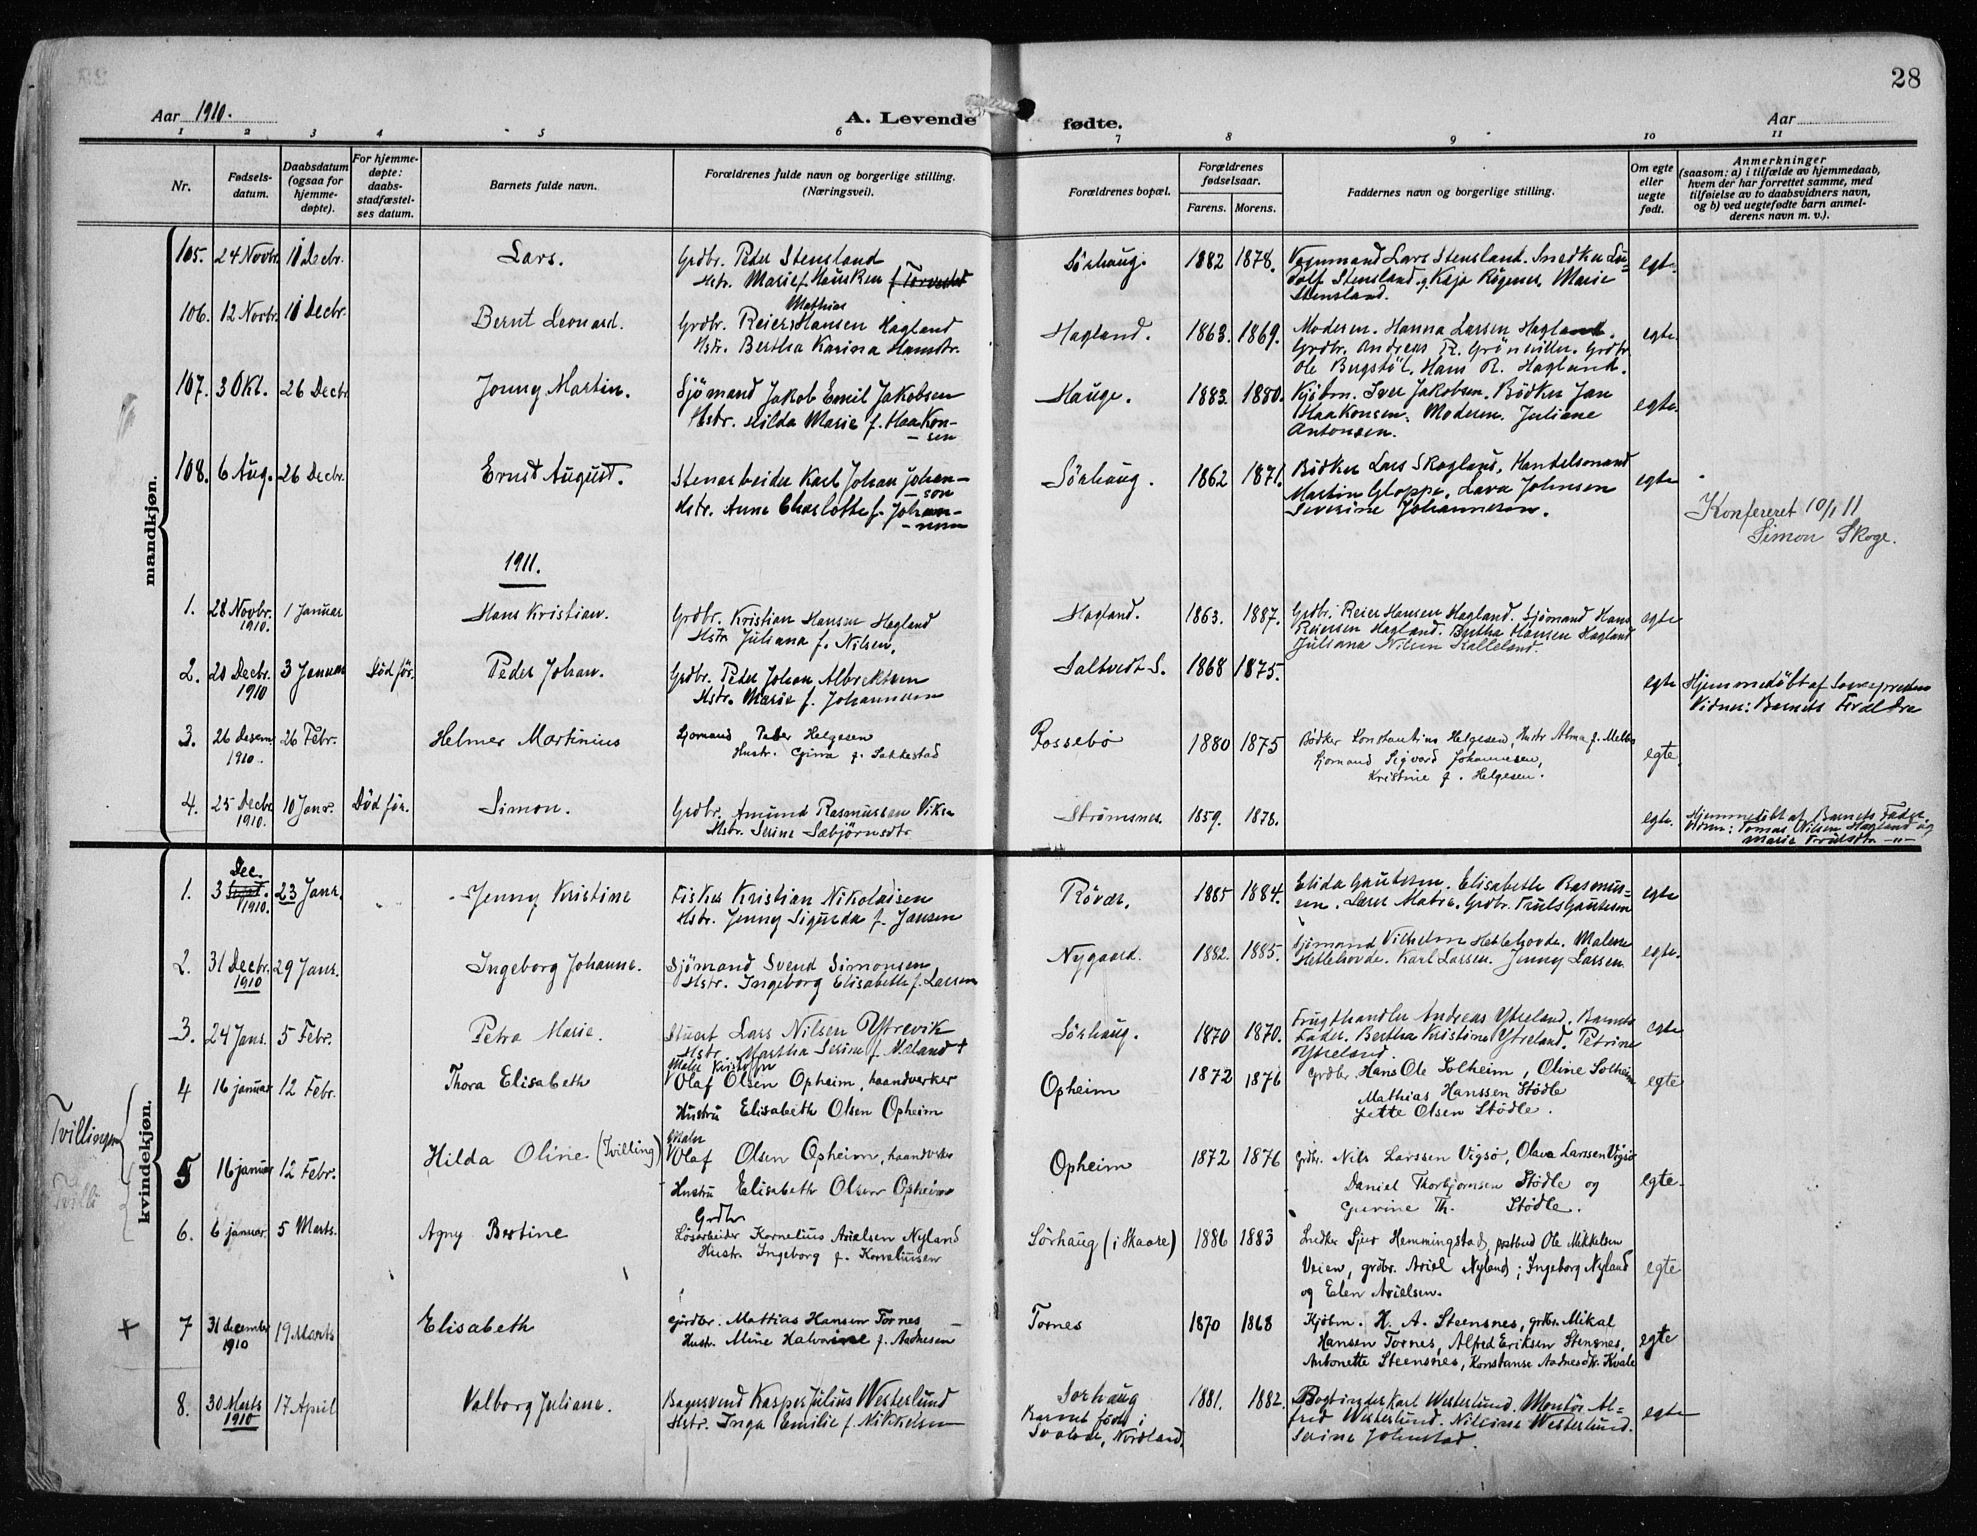 28
Aar 1910.
A. Levende fødte.
Aar
1 2 3 4 5 6 7 8 9 10 11
Nr.
Fødsels-
datum.
Daabsdatum
(ogsaa for
hjemme-
døpte).
For hjemme-
døpte:
daabs-
stadfæstel-
ses datum.
Barnets fulde navn.
Forældrenes fulde navn og borgerlige stilling.
(Næringsvei).
Forældrenes bopæl.
Forældrenes
fødselsaar.
Farens. Morens.
Faddernes navn og borgerlige stilling.
Om egte
eller
uegte
født.
Anmerkninger
(saasom: a) i tilfælde av hjemmedaab,
hvem der har forrettet samme, med
tilføielse av to daabsvidners navn,
og b) ved uegtefødte barn anmel-
derens navn m. v.).
mandkjøn.
105. 24 Novbr. 11 Decbr. Lars. Grdbr. Peder Stensland Sørhaug. 1882 1878. Lars Stensland. Snedker Lu- egte.
Hstr. Marie f. Hausken f Torvestad dolf Stensland. Kaja Røgenes, Marie
Stensland.
106. 12 Novbr. 11 Decbr. Bernt Leonard. Grdbr. Reier Mathias Hansen Hagland Hagland. 1863. 1869. Moderen. Hanna Larsen Hagland. egte.
Hstr. Bertha Karina Hansdtr. Grdbr. Andreas R. Grønviller. Grdbr.
Ole Bergstøl, Hans R. Hagland.
107. 3 Okt. 26 Decbr. Jonny Martin. Sjømand Jakob Emil Jakobsen Hauge. 1883. 1880. Kjøbm. Iver Jakobsen. Bødker Jan egte.
Hstr. Hilda Marie f. Haakon- Haakonsen. Moderen. Juliane
-sen Antonsen.
108. 6 Aug. 26 Decbr. Ernst August. Stenarbeider Karl Johan Johan- Sørhaug. 1862 1871. Bødker Lars Skogland, Handelsmand egte
-son Martin Gloppe, Lava Johnsen
Hstr. Anne Charlotte f. Johan- Severine Johannesen.
-nesen
Konfereret 10/1 11
Simon Skoge.
1911.
1. 28 Novbr. 1 Januar Hans Kristian. Grdbr. Kristian Hansen Hagland Hagland. 1863. 1887. Grdbr. Reier Hansen Hagland. Sjømand Hans egte
1910. Hstr. Juliana f. Nilsen. Reiersen Hagland. Bertha Hansen Hagland
Juliana Nilsen Kalleland.
2. 20 Decbr. 3 Januar Død før. Peder Johan. Grdbr. Peder Johan Albrektsen Saltvedt S. 1868 1875. egte Hjemmedøbt af Sognepresten
1910 Hstr. Marie f. Johannesen Vidner: Barnets Forældre
3. 26 desem 26 Febr. Helmer Martinius Sjømand Peder Helgesen Rossebø 1880 1875 Bødker Konstantius Helgesen, Hustr Alma f. egte.
1910. Hustr. Gina f. Sakkestad Sjømand Sigvard Johannesen,
Kristine f. Helgesen.
4. 25 Decbr. 10 Janr. Død før. Simon. Grdbr. Amund Rasmussen Vikse Strømsnes. 1859. 1878. egte. Hjemmedøbt af Barnets Fader.
1910. Hstr. Serine Sæbjørnsdtr Vidner: Tomas Nilsen Hagland og
Marie
kvindekjøn.
1. 3 Dec. 1910. 23 Janr. Jenny Kristine Fisker Kristian Nikolaisen Røvær. 1885 1884. Elida Gautesen. Elisabeth Rasmus- egte
Hstr. Jenny Sigurda f. Jansen sen. Lars Matre. Grdbr. Truls Gautesen
2. 31 Decbr. 29 Janr. Ingeborg Johanne. Sjømand Svend Simonsen Nygaard. 1882. 1885. Sjømand Vilhelm Hettehovde. Malene egte.
1910 Hstr. Ingeborg Elisabeth f. Larsen Hettehovde. Karl Larsen. Jenny Larsen.
3. 24 Janr. 5 Febr. Petra Marie. Stuert Lars Nilsen Ytrevik Sørhaug. 1870 1870. Frugthandler Andreas Ytreland. Barnets egte
Hstr. Martha Serine f. Mæland + Fader. Bertha Kristine Ytreland. Petrine
Ytreland.
Tvillinger
4 16 januar 12 Febr. Thora Elisabeth Olaf Olsen Opheim, haandverker Opheim 1872 1876 Grdbr. Hans Ole Solheim, Oline Solheim egte
Hustru Elisabeth Olsen Opheim Mathias Hanssen Stødle
Jette Olsen Stødle.
5 16 januar 12 Febr. Hilda Oline (Tvilling) Olaf Olsen Opheim, haandverker Opheim 1872 1876 Grdbr. Nils Larssen Vigsø, Olava Larssen Vigsø egte.
Tvilli Hustru Elisabeth Olsen Opheim Daniel Thorbjørnsen Stødle og
Gurine Th. Stødle.
6. 6 januar. 5 Marts. Agny Bertine Grdbr Løsarbeider Kornelius Arielsen Nyland Sörhaug (i Skaare) 1886 1883 Snedker Sjur Hemmingstad, postbud Ole Mikkelsen egte
Hustr. Ingeborg f. Korneliusen Veien, grdbr. Ariel Nyland; Ingeborg Nyland
og Elen Arielsen.
+ 7 31 december 19 Marts Elisabeth Gårdbr. Mattias Hansen Tornes Tornes 1870 1868 Kjöbm. H. A. Steensnes, grdbr. Mikal egte
1910 Hustr. Mine Halvorine f. Andresen Hansen Tornes, Alfred Eriksen Stensnes,
Antonette Steensnes, Konstanse Aadnesdtr. Kvale
8. 30 Marts 17 April Valborg Juliane. Bagersvend Kasper Julius Westerlund Sorhaug 1881. 1882. Bogbinder Karl Westerlund. Montør Al- egte
1910 Hstr. Inga Emilie f. Nikkelsen Barnet født i fred Westerlund. Nilsine Westerlund.
Svolvær, Nordland. Serine Johnstad.